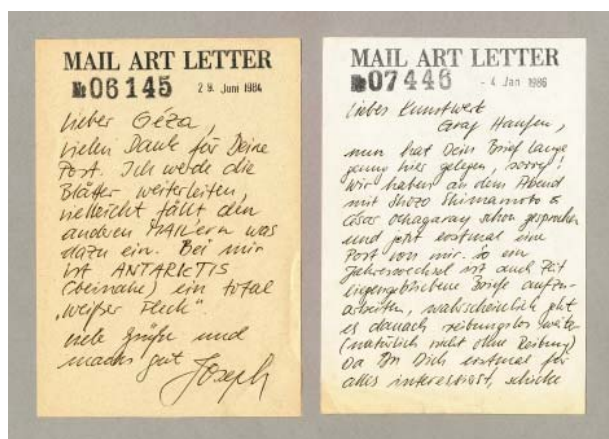 MAIL ART LETTER
№06145 29. Juni 1984
Lieber Géza,
vielen Dank für Deine
Post. Ich werde die
Blätter weiterleiten,
vielleicht fällt den
anderen MAILern was
dazu ein. Bei mir
ist ANTARKTIS
(beinahe) ein total
„weißer Fleck"
viele Grüße und
machs gut Joseph
MAIL ART LETTER
№07446 - 4. Jan 1986
Liebes Kunstwert
Graf Haufen,
nun hat Dein Brief lange
genug hier gelegen, sorry!
Wir haben an dem Abend
mit Shozo Shimamoto &
César Ochagaray schon gesprochen
und jetzt erstmal eine
Post von mir. So ein
Jahreswechsel ist auch Zeit
liegengebliebene Briefe aufzu-
arbeiten, wahrscheinlich geht
es danach reibungslos weiter
(natürlich nicht ohne Reibung)
Da Du Dich erstmal für
alles interessierst, schicke